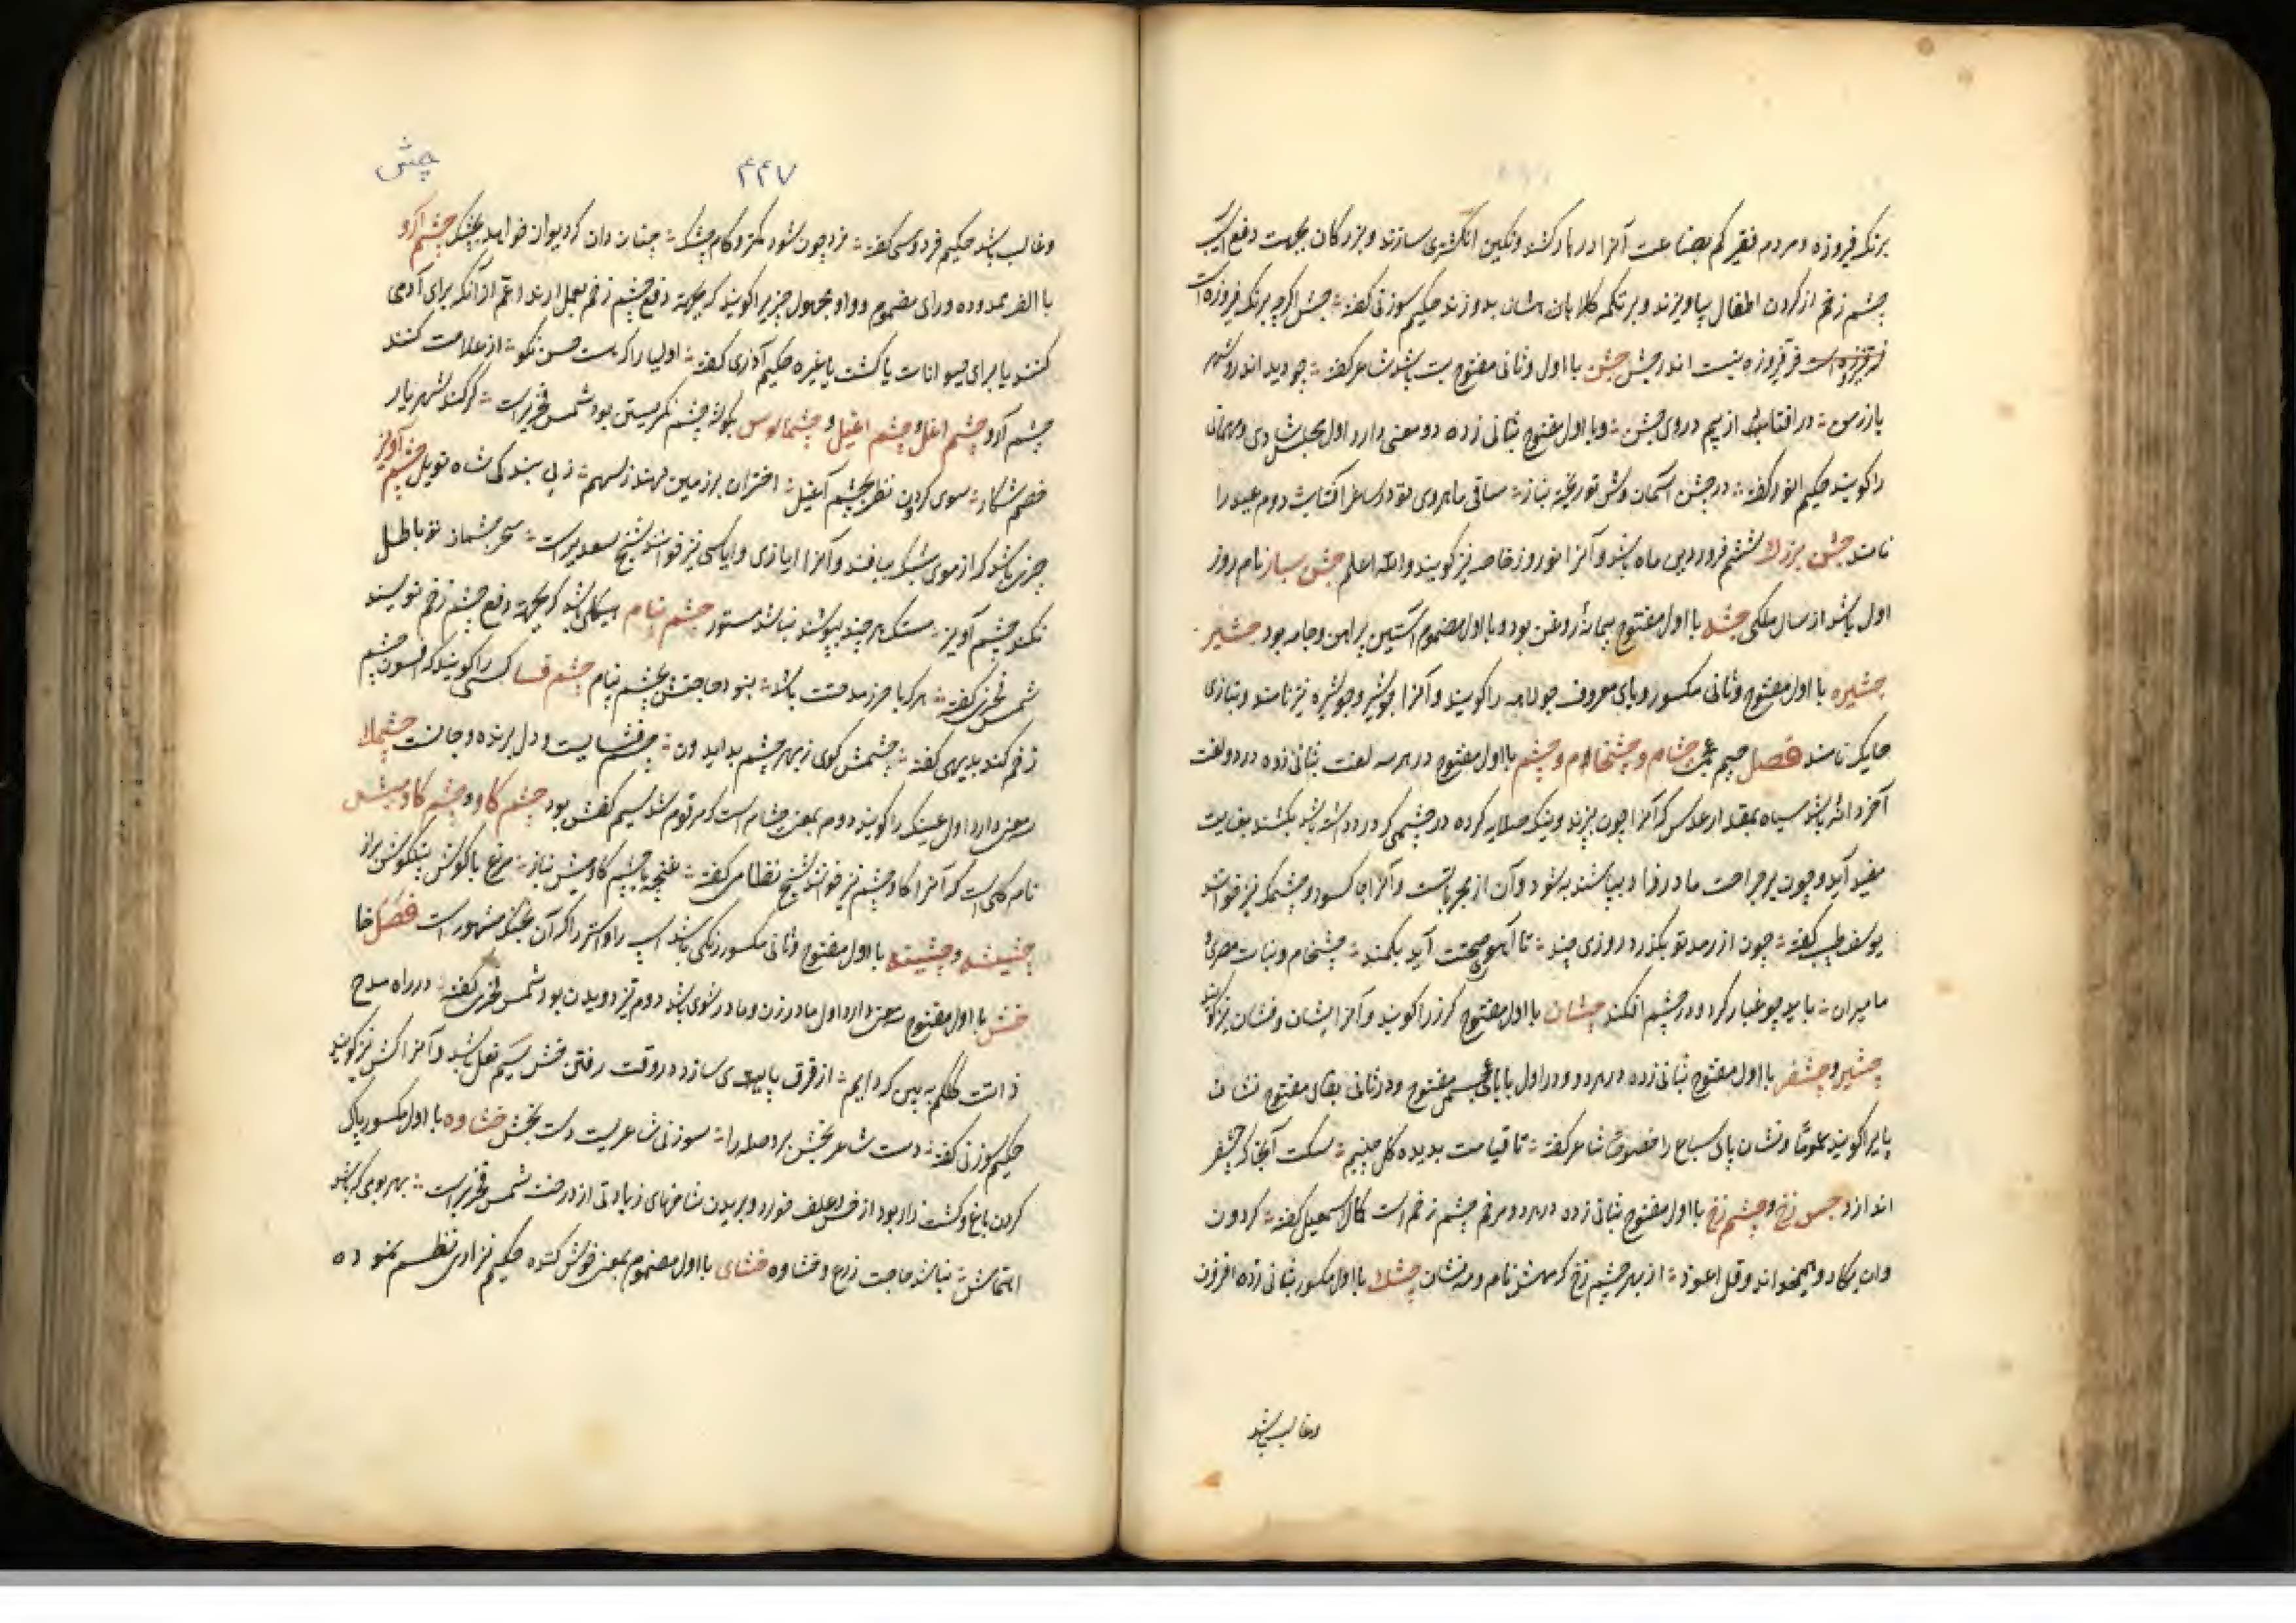 برنک فیروزه و مردم فقیر کم بضاعت آنرا در کشند و نکین انکشتری سازند و بزرکان بجهت دفع آسیب
چشم زخم از کردن اطفال بیاویزند و بر تکمه کلاه ایشان بدوزند حکیم سوزنی کفته جشن اکرچه برنک فیروزه است
فر فیروزه نیست اندر جشن جشن با اول و ثانی مفتوح تب باشد شاعر کفته چو دید اندرو شهر
یاررس در افتاب از بیم در وی جشن و با اول مفتوح بثانی زده دو معنی دارد اول مجلس شادی و مهمانی
را کویند حکیم انوری کفته در جشن آسمان وش تو ریخته بناز ساقی ماهروی تو در ساغر آفتاب دوم عید را
نامند جشن بزرک ششم فروردین ماه باشد و آنرا نوروز خاصه نیز کویند والله اعلم جشن ساز نام روز
اول باشد از سال ملکی جشه با اول مفتوح پیمانه روغن بود و با اول مضموم آستین پیراهن و جامه بود جشیر
جشیره با اول مفتوح و ثانی مکسور و یای معروف جولاهه را کویند و آنرا جوشیر و جوشیره نیز نامند و بتازی
حایک نامند فصل جیم عجمی چشام و چشخام و چشم با اول مفتوح در هر سه لغت بثانی زده در دو لغت
آخر دانه باشد سیاه بمقدار عدس که آنرا چون بپزند و نیک صلایه کرده در چشمی که درد داشته باشد بکشند بغایت
مفید آید و چون بر جراحت ماده فساد بپاشند به شود و آن از مجربات است و آنرا چاکسو و چشمک نیز خوانند
یوسف طبیب کفته چون از رمد تو بکذرد روزی چند تا آهوی صحت آید بکمند چشخام و نبات مصری و
مامیران باید چو غبار کرد و در چشم افکند چشان با اول مفتوح کرز را کویند و آنرا لشان و فشان نیز کویند
چشپر و چشفر با اول مفتوح بثانی زده در هر دو و در اول با بای عجمی مفتوح و در ثانی بفای مفتوح نشان
پایرا کویند عموما و نشان پای سباع را خصوصا شاعر کفته تا قیامت بدیده کل چینیم سکت آنجا که چشفر
اندازد چش زخ و چشم زخ با اول مفتوح بثانی زده در هر دو مرخم چشم زخم است کمال اسمعیل کفته کردون
وان یکاد و همیخواند و قل اعوذ از بهر چشم زخ کرمش نام و مه نشان چشک با اول مکسور بثانی زده افزون
وغالب باشد
چش
۴۴۷
وغالب باشد حکیم فردوسی کفته خرد چون شود کمتر و کام چشک چنان دان که دیوان خوانید بچشک چشم آرو
با الف ممدوده و رای مضموم و واو مجهول چیزیرا کویند که بجهة دفع چشم زخم بعمل ارند اعم از آنکه برای آدمی
کنند یا برای حیوانات یا کشت یا غیره حکیم آذری کفته اولیا را که هست حسن نکو از علامت کنند
چشم آرو چشم اغل و چشم اغیل و چشمالوس بکوشه چشم نکریستن بود شمس فخریراست کر کند شهریار
خصم شکار سوی کردون نظر بچشم آغیل اختران بر زمین نهند ز سهم ز پی بندکی شاه تویل چشم آویز
چیزی باشد که از موی شبکه ببافند و آنرا ایازی و ایاسی نیز خوانند شیخ سعدیراست سحر چشمان تو باطل
نکند چشم آویز مست چندان که بپوشند نباشد مستور چشم پنام هیکلی باشد که بجهة دفع چشم زخم نویسند
شمس فخری کفته هر کرا حرز مدحتت باشد نبود حاجتش بچشم پنام چشم فسا کسی را کویند که افسون چشم
زخم کند بدیهی کفته چشمش کوی ز بهر چشم بد ایدون چشم فسایست و دل برنده و جانست چشملاک
دو معنی دارد اول عینک را کویند دوم بمعنی چشام است که مرقوم شد سیم کفش بود چشم کاو و چشم کاومیش
نام کلی است که آنرا کاوچشم نیز خوانند شیخ نظامی کفته غنچه با چشم کاومیش بناز مرغ با کوش پیلکوش براز
چشینه و چشینه با اول مفتوح و ثانی مکسور رنکی باشد اسپ را و استر را که آن بخنک مشهور است فصل خا
خش با اول مفتوح سه معنی دارد اول مادر زن و مادر شوی باشد دوم تیز دویدن بود شمس فخری کفته در راه مدح
ذات کلکم به پیش کرد ایم از فرق پای سازد در وقت رفتن خش سیم بغل باشد و آنرا کش نیز کویند
حکیم سوزنی کفته دست شاعر بخش بر د صله را سوزنی شاعریست دست بخش خشاوه با اول مکسور پاک
کردن باغ و کشت زار بود از خس و علف خودرو و بریدن شاخهای زیادتی از درخت شمس فخریراست بهر بومی که باشد
اهتمامش نباشد حاجت زرع و خشاوه خشای با اول مضموم بمعنی خوش کننده حکیم نزاری نظم نموده